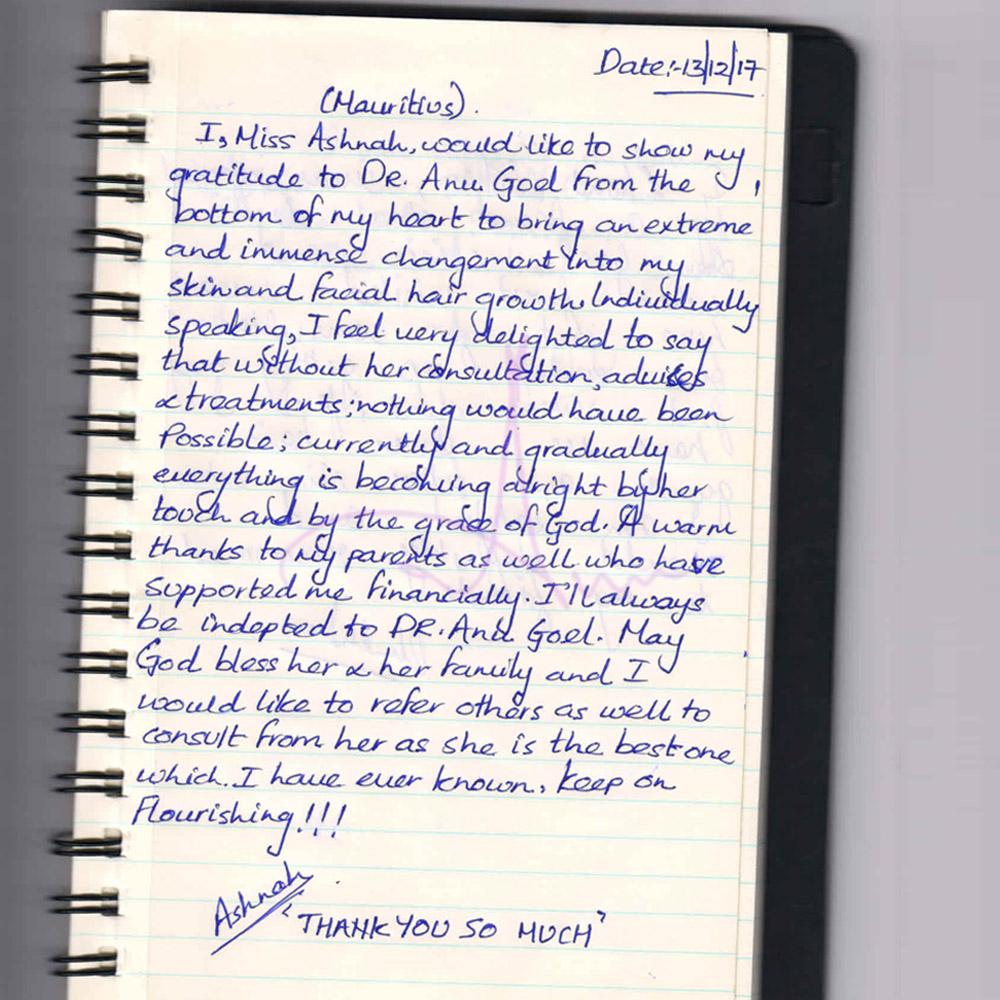 Date:-13/12/17
(Mauritius).
I, Miss Ashnah, would like to show my
gratitude to DR. Anu Goel from the
bottom of my heart to bring an extreme
and immense changement into my
skin and facial hair growth. Individually
speaking, I feel very delighted to say
that without her consultation, advises
& treatments; nothing would have been
Possible; currently and gradually
everything is becoming alright by her
touch and by the grace of God. A warm
thanks to my parents as well who have
supported me financially. I'll always
be indepted to DR. Anu Goel. May
God bless her & her family and I
would like to refer others as well to
consult from her as she is the best one
which I have ever known, keep on
Flourishing!!!
Ashnah
"THANK YOU SO MUCH"